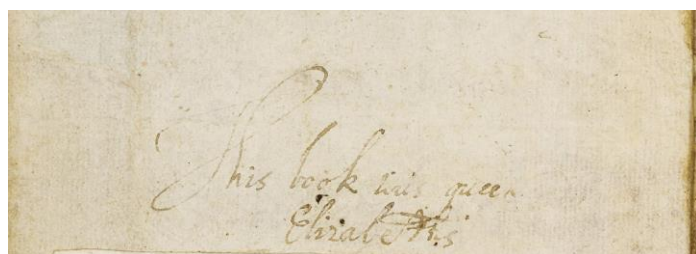 This book was queen
Elizabeths